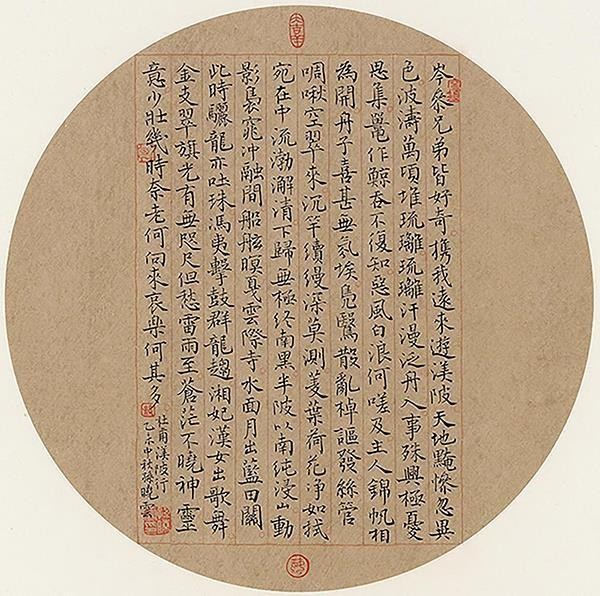 岑參兄弟皆好奇携我遠來遊渼陂天地黤慘忽異
色波濤萬頃堆琉璃琉璃汗漫泛舟入事殊興極憂
思集鼉作鯨吞不復知惡風白浪何嗟及主人錦帆相
為開舟子喜甚無氛埃鳧鷖散亂棹謳發絲管
啁啾空翠來沉竿續縵深莫測菱葉荷花净如拭
宛在中流渤澥清下歸無極終南黑半陂以南純浸山動
影裊窕沖融間船舷暝戛雲際寺水面月出藍田關
此時驪龍亦吐珠馮夷擊鼓群龍趨湘妃漢女出歌舞
金支翠旗光有無咫尺但愁雷雨至蒼茫不曉神靈
意少壯幾時奈老何向來哀樂何其多
杜甫渼陂行
乙未中秋孫曉雲